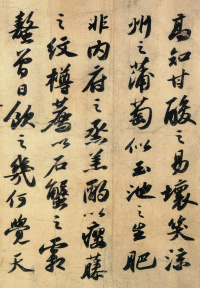 高知甘酸之易壞笑涼
州之蒲萄似玉池之生肥
非内府之烝羔酌以癭藤
之紋樽薦以石蟹之霜
螯曾日飲之幾何覺天